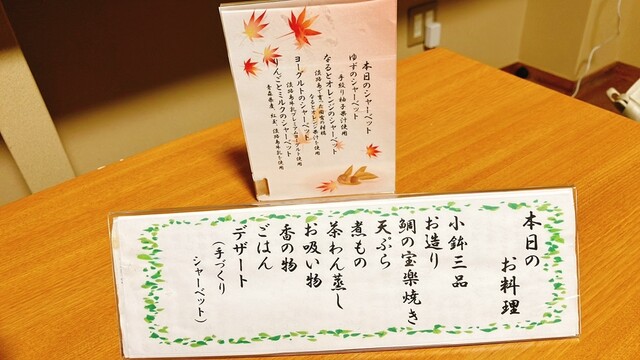 本日のシャーベット
ゆずのシャーベット
手絞り柚子果汁使用
なるとオレンジのシャーベット
なるとオレンジ果汁を使用
ヨーグルトのシャーベット
りんごとミルクのシャーベット
本日の
お料理
小鉢三品
お造り
鯛の宝楽焼き
天ぷら
煮もの
茶わん蒸し
お吸い物
香の物
ごはん
デザート
(手づくり
シャーベット)